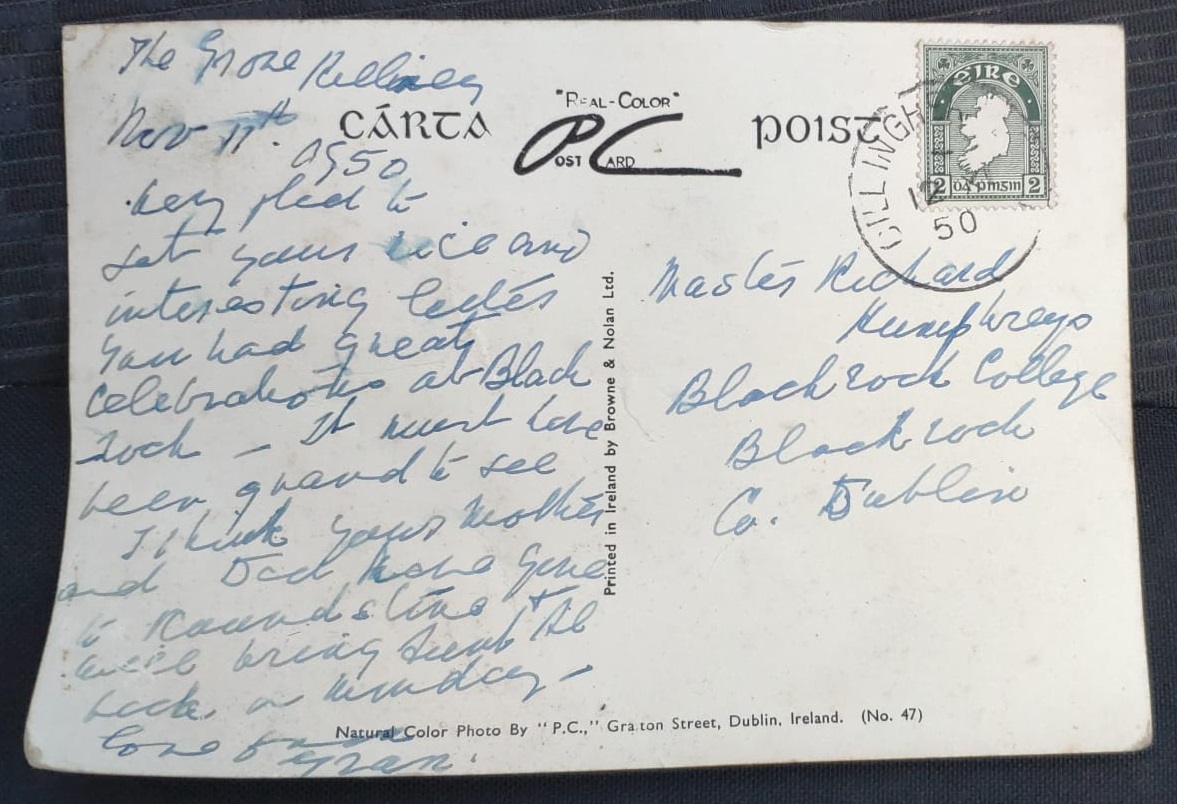 The Grove Killiney
Nov 11th.
1950
Very glad to
get your nice and
interesting letter
You had great
celebrations at Black
rock - It must have
been grand to see
I think your Mother
and Dad have gone
to Roundstone &
will bring Aunt
back on Monday -
love from
Gran.
CÁRTA
"REAL-COLOR"
POST CARD
POIST
ÉIRE
2 2
GILLINGH
12
50
Master Richard
Humphreys
Blackrock College
Blackrock
Co. Dublin
Printed in Ireland by Browne & Nolan Ltd.
Natural Color Photo By "P.C.," Grafton Street, Dublin, Ireland. (No. 47)